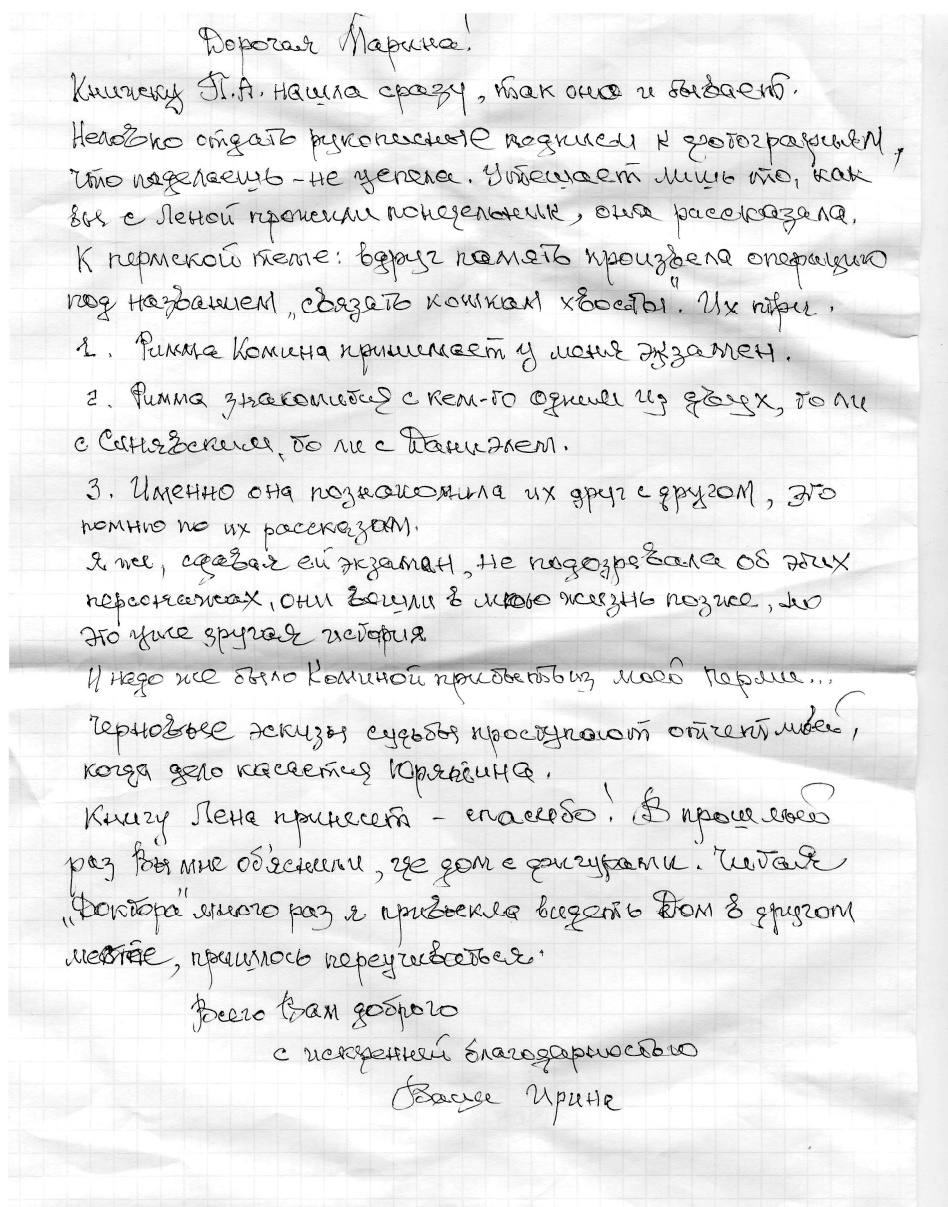 Дорогая Марина!
Книжку П.А. нашла сразу, так оно и бывает.
Неловко отдать рукописные подписи к фотографиям,
что поделаешь – не успела. Утешает лишь то, как
вы с Леной прожили понедельник, она рассказала.
К пермской теме: вдруг память произвела операцию
под названием „связать кошкам хвосты". Их три.
1. Римма Комина принимает у меня экзамен.
2. Римма знакомится с кем-то одним из двух, то ли
с Синявским, то ли с Даниэлем.
3. Именно она познакомила их друг с другом, это
помню по их рассказам.
Я же, сдавая ей экзамен, не подозревала об этих
персонажах, они вошли в мою жизнь позже, но
это уже другая история
И надо же было Коминой прибыть из моей Перми...
Черновые эскизы судьбы проступают отчетливей,
когда дело касается Юрятина.
Книгу Лена принесет – спасибо! В прошлый
раз Вы мне объяснили, где дом с фигурами. Читая
„Доктора" много раз я привыкла видеть Дом в другом
месте, пришлось переучиваться.
Всего Вам доброго
с искренней благодарностью
Ваша Ирина